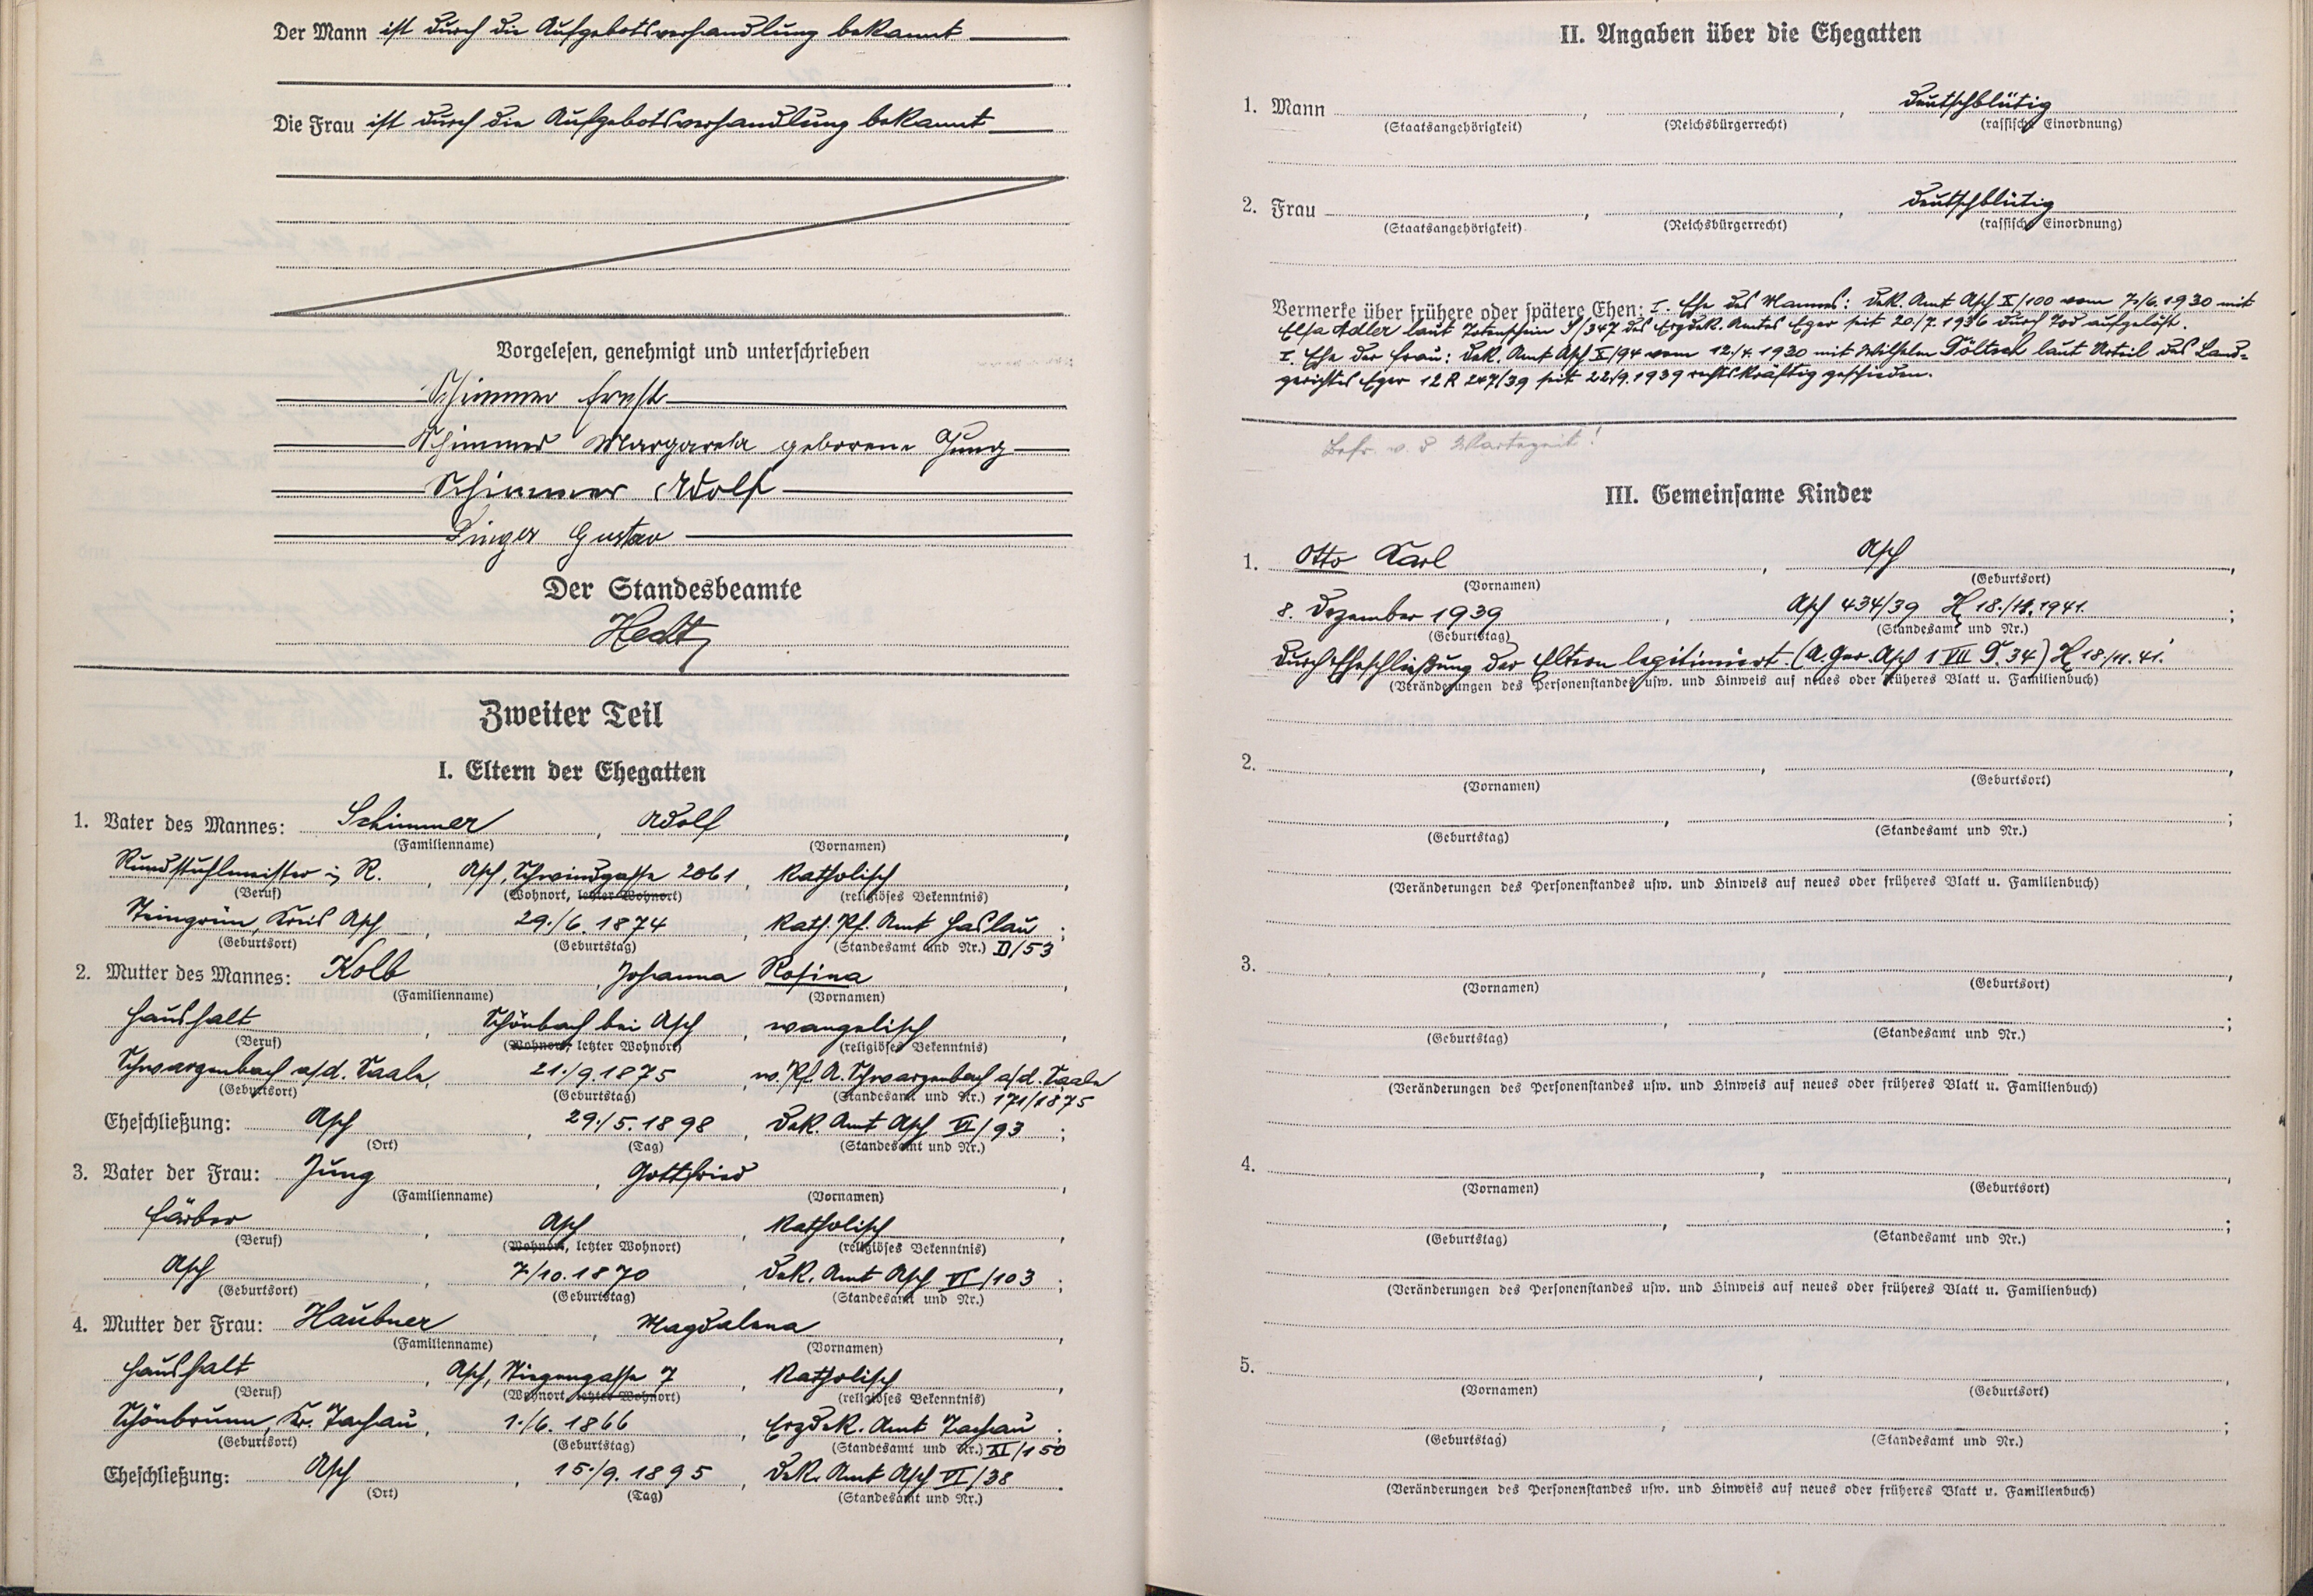 Der Mann ist durch die Aufgebotsverhandlung bekannt
Die Frau ist durch die Aufgebotsverhandlung bekannt
Vorgelesen, genehmigt und unterschrieben
Schimmer Ernst
Schimmer Margareta geborene Jung
Schimmer Adolf
Singer Gustav
Der Standesbeamte
Zweiter Teil
I. Eltern der Ehegatten
1. Vater des Mannes: Schimmer, Adolf,
(Familienname) (Vornamen)
Rundstuhlmeister i. R., Asch, Schwindgasse 2061, katholisch,
(Beruf) (Wohnort, letzter Wohnort) (religiöses Bekenntnis)
Steingrün, Kreis Asch, 29./6. 1874, kath. Pf. Amt Haslau;
(Geburtsort) (Geburtstag) (Standesamt und Nr.) D/53
2. Mutter des Mannes: Kolb, Johanna Rosina,
(Familienname) (Vornamen)
Haushalt, Schönbach bei Asch, evangelisch,
(Beruf) (Wohnort, letzter Wohnort) (religiöses Bekenntnis)
Schwarzenbach a/d. Saale, 21./9. 1875, ev. Pf. A. Schwarzenbach a/d. Saale
(Geburtsort) (Geburtstag) (Standesamt und Nr.) 171/1875
Eheschließung: Asch, 29./5. 1898, Dek. Amt Asch VI/93;
(Ort) (Tag) (Standesamt und Nr.)
3. Vater der Frau: Jung, Gottfried,
(Familienname) (Vornamen)
Färber, Asch, katholisch,
(Beruf) (Wohnort, letzter Wohnort) (religiöses Bekenntnis)
Asch, 7/10. 1870, Dek. Amt Asch VI/103;
(Geburtsort) (Geburtstag) (Standesamt und Nr.)
4. Mutter der Frau: Haubner, Magdalena,
(Familienname) (Vornamen)
Haushalt, Asch, Stiegengasse 7, katholisch,
(Beruf) (Wohnort, letzter Wohnort) (religiöses Bekenntnis)
Schönbrunn, Kr. Tachau, 1./6. 1866, Erzdek. Amt Tachau;
(Geburtsort) (Geburtstag) (Standesamt und Nr.) XI/150
Eheschließung: Asch, 15./9. 1895, Dek. Amt Asch VI/38.
(Ort) (Tag) (Standesamt und Nr.)
II. Angaben über die Ehegatten
1. Mann, , deutschblütig
(Staatsangehörigkeit) (Reichsbürgerrecht) (rassische Einordnung)
2. Frau, , deutschblütig
(Staatsangehörigkeit) (Reichsbürgerrecht) (rassische Einordnung)
Vermerke über frühere oder spätere Ehen: I. Ehe des Mannes: Dek. Amt Asch X/100 vom 7./6. 1930 mit
Elsa Adler laut Totenschein S/347 des Erzdek. Amtes Eger seit 20./7. 1936 durch Tod aufgelöst.
I. Ehe der Frau: Dek. Amt Asch X/94 vom 12./4. 1930 mit Wilhelm Pöltsch laut Urteil des Land-
gerichtes Eger 12 R 247/39 seit 22./9. 1939 rechtskräftig geschieden.
Befr. v. d. Wartezeit!
III. Gemeinsame Kinder
1. Otto Karl, Asch,
(Vornamen) (Geburtsort)
8. Dezember 1939, Asch 434/39 H 18./11. 1941.;
(Geburtstag) (Standesamt und Nr.)
Durch Eheschließung der Eltern legitimiert. (A. Ger. Asch 1 VII P. 34) H 18/11. 41.
(Veränderungen des Personenstandes usw. und Hinweis auf neues oder früheres Blatt u. Familienbuch)
2. , ,
(Vornamen) (Geburtsort)
, ;
(Geburtstag) (Standesamt und Nr.)
(Veränderungen des Personenstandes usw. und Hinweis auf neues oder früheres Blatt u. Familienbuch)
3. , ,
(Vornamen) (Geburtsort)
, ;
(Geburtstag) (Standesamt und Nr.)
(Veränderungen des Personenstandes usw. und Hinweis auf neues oder früheres Blatt u. Familienbuch)
4. , ,
(Vornamen) (Geburtsort)
, ;
(Geburtstag) (Standesamt und Nr.)
(Veränderungen des Personenstandes usw. und Hinweis auf neues oder früheres Blatt u. Familienbuch)
5. , ,
(Vornamen) (Geburtsort)
, ;
(Geburtstag) (Standesamt und Nr.)
(Veränderungen des Personenstandes usw. und Hinweis auf neues oder früheres Blatt u. Familienbuch)